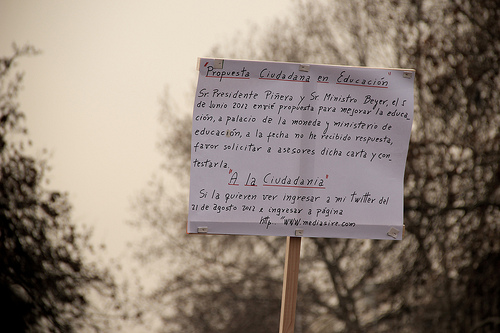 "Propuesta Ciudadana en Educación"
Sr. Presidente Piñera y Sr Ministro Beyer, el 5
de Junio 2012 envié propuesta para mejorar la educa
ción, a palacio de la moneda y ministerio de
educación, a la fecha no he recibido respuesta,
favor solicitar a asesores dicha carta y con
testarla.
"A la Ciudadanía"
Si la quieren ver ingresar a mi Twitter del
21 de agosto 2012 e ingresar a página
http "WWW.mediafire.com